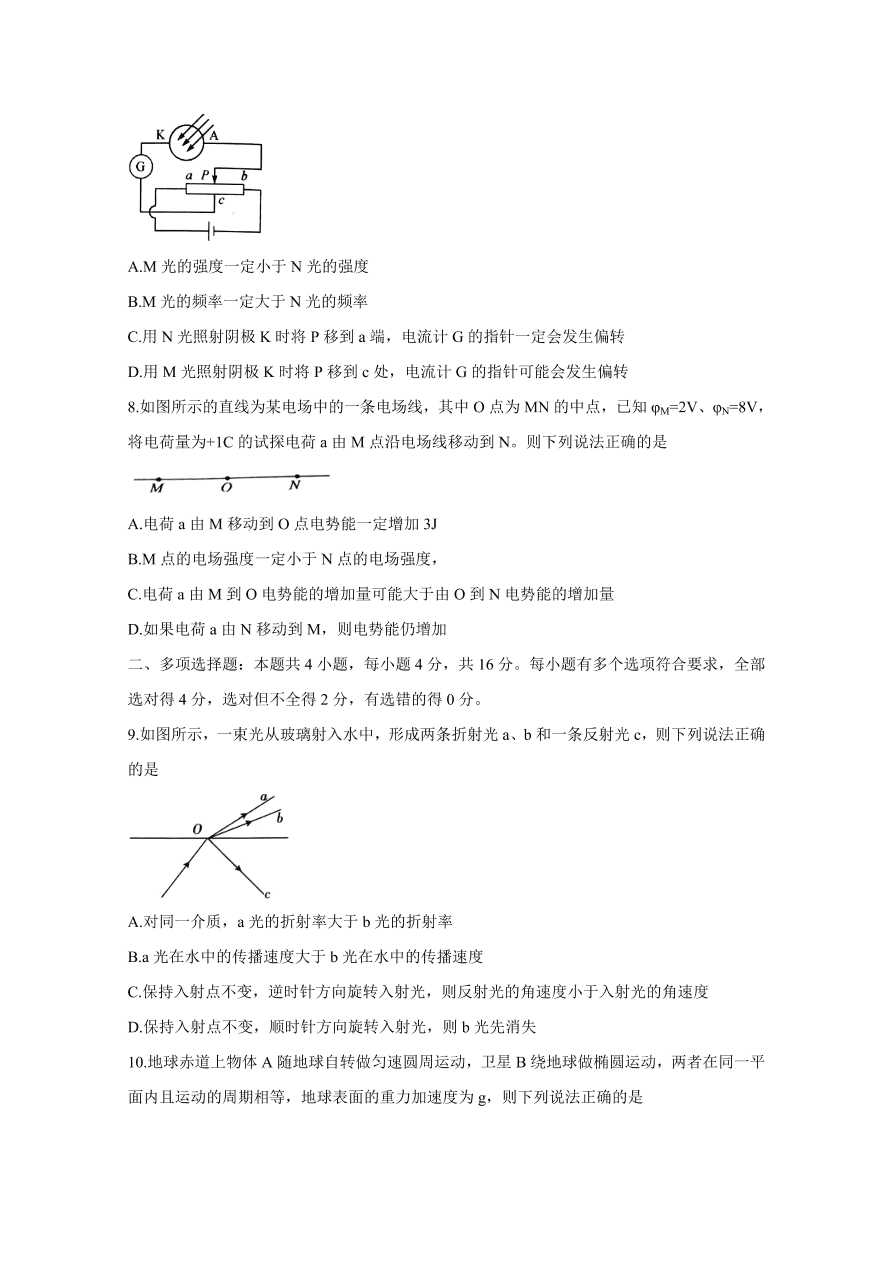 K
A
G
a P b
c
A.M 光的强度一定小于 N 光的强度
B.M 光的频率一定大于 N 光的频率
C.用 N 光照射阴极 K 时将 P 移到 a 端，电流计 G 的指针一定会发生偏转
D.用 M 光照射阴极 K 时将 P 移到 c 处，电流计 G 的指针可能会发生偏转
8.如图所示的直线为某电场中的一条电场线，其中 O 点为 MN 的中点，已知 φM=2V、φN=8V，
将电荷量为+1C 的试探电荷 a 由 M 点沿电场线移动到 N。则下列说法正确的是
M O N
A.电荷 a 由 M 移动到 O 点电势能一定增加 3J
B.M 点的电场强度一定小于 N 点的电场强度，
C.电荷 a 由 M 到 O 电势能的增加量可能大于由 O 到 N 电势能的增加量
D.如果电荷 a 由 N 移动到 M，则电势能仍增加
二、多项选择题：本题共 4 小题，每小题 4 分，共 16 分。每小题有多个选项符合要求，全部
选对得 4 分，选对但不全得 2 分，有选错的得 0 分。
9.如图所示，一束光从玻璃射入水中，形成两条折射光 a、b 和一条反射光 c，则下列说法正确
的是
a
b
O
c
A.对同一介质，a 光的折射率大于 b 光的折射率
B.a 光在水中的传播速度大于 b 光在水中的传播速度
C.保持入射点不变，逆时针方向旋转入射光，则反射光的角速度小于入射光的角速度
D.保持入射点不变，顺时针方向旋转入射光，则 b 光先消失
10.地球赤道上物体 A 随地球自转做匀速圆周运动，卫星 B 绕地球做椭圆运动，两者在同一平
面内且运动的周期相等，地球表面的重力加速度为 g，则下列说法正确的是